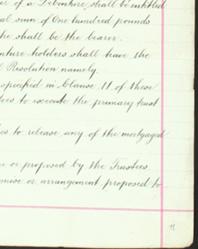 er of a Debenture shall be entitled
al sum of One hundred pounds
he shall be the bearer.
enture holders shall have the
l Resolution namely.
specified in Clause 11 of these
tees to execute the primary trust
ees to release any of the mortgaged
e or proposed by the Trustees
omise or arrangement proposed to